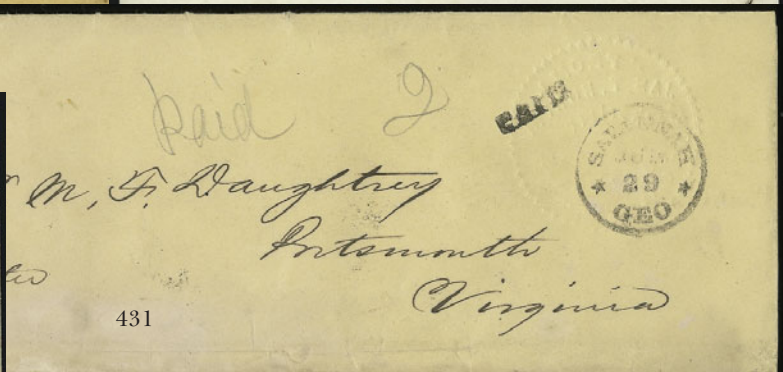 Paid 2
PAID
SAVANNAH
JUN
29
GEO
M. F. Daughtrey
Portsmouth
Virginia
431